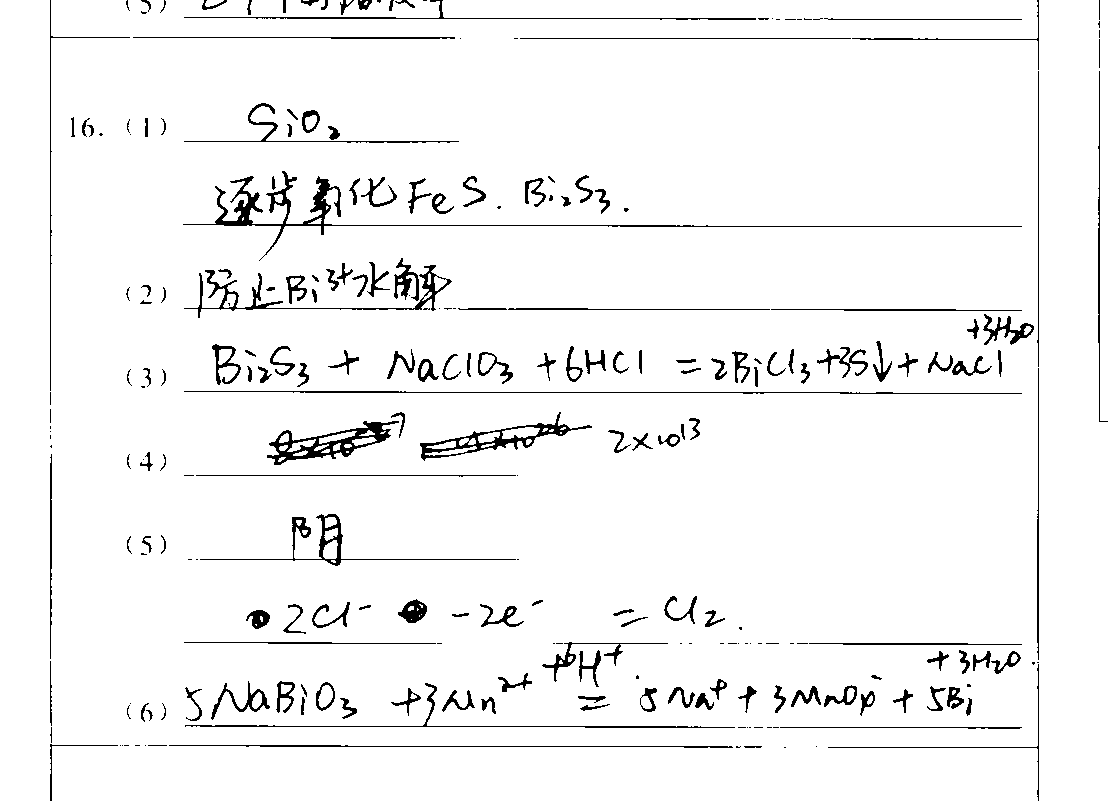 (5)
16. (1) SiO₂
逐步氧化FeS. Bi₂S₃.
(2) 防止Bi³⁺水解
(3) Bi₂S₃ + NaClO₃ + 6HCl = 2BiCl₃ + 3S↓ + NaCl +3H₂O
(4) 2×10¹³
(5) 阴
2Cl⁻ -2e⁻ = Cl₂.
(6) 5NaBiO₃ +3Mn²⁺ +6H⁺ = 5Na⁺ + 3MnO₄⁻ + 5Bi +3H₂O